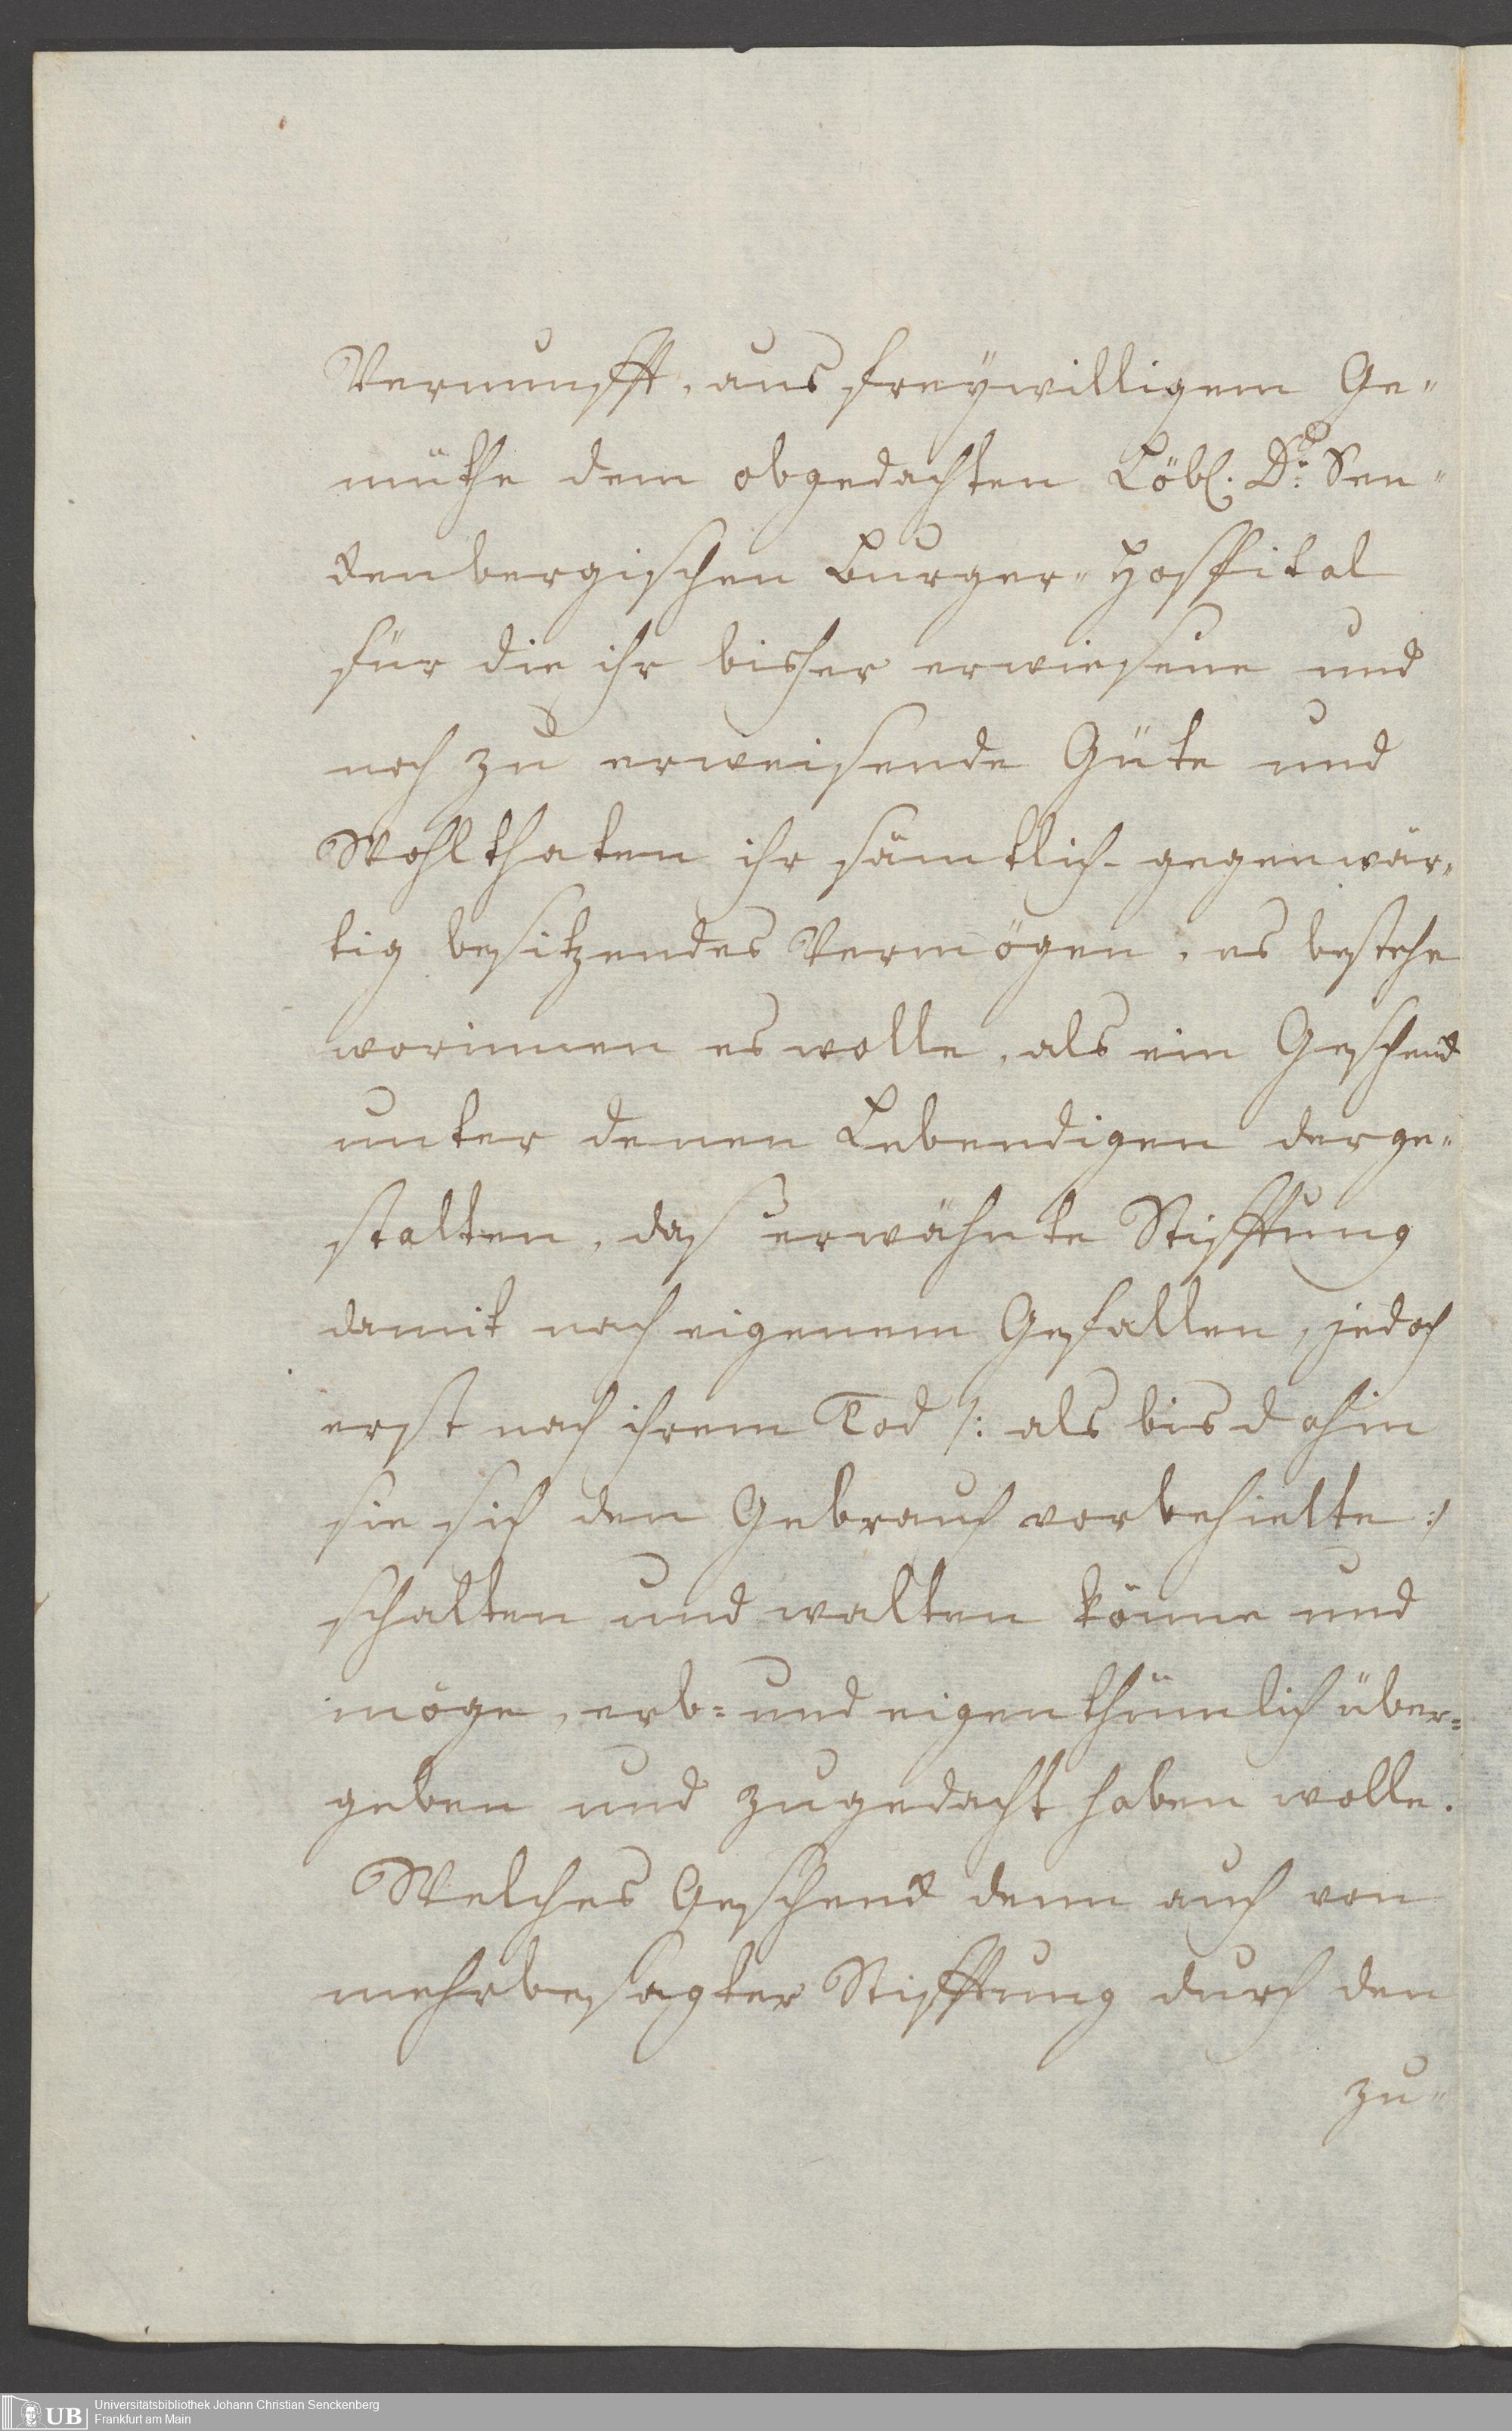 Vernunfft, aus freÿwilligem Ge-
müthe dem obgedachten Löbl. Dr. Sen-
ckenbergischen Burger-Hospital
für die ihr bisher erwiesene und
noch zu erweisende Güte und
Wohlthaten ihr sämtlich-gegenwär-
tig besitzendes Vermögen, es bestehe
worinnen es wolle, als ein Geschenck
unter denen Lebendigen derge-
stalten, daß erwähnte Stifftung
damit nach eigenem Gefallen, jedoch
erst nach ihrem Tod /: als bis dahin
sie sich den Gebrauch vorbehielte :/
schalten und walten könne und
möge, erb- und eigenthümlich über-
geben und zugedacht haben wolle.
Welches Geschenck denn auch von
mehrbesagter Stifftung durch den
zu-
UB
Universitätsbibliothek Johann Christian Senckenberg
Frankfurt am Main